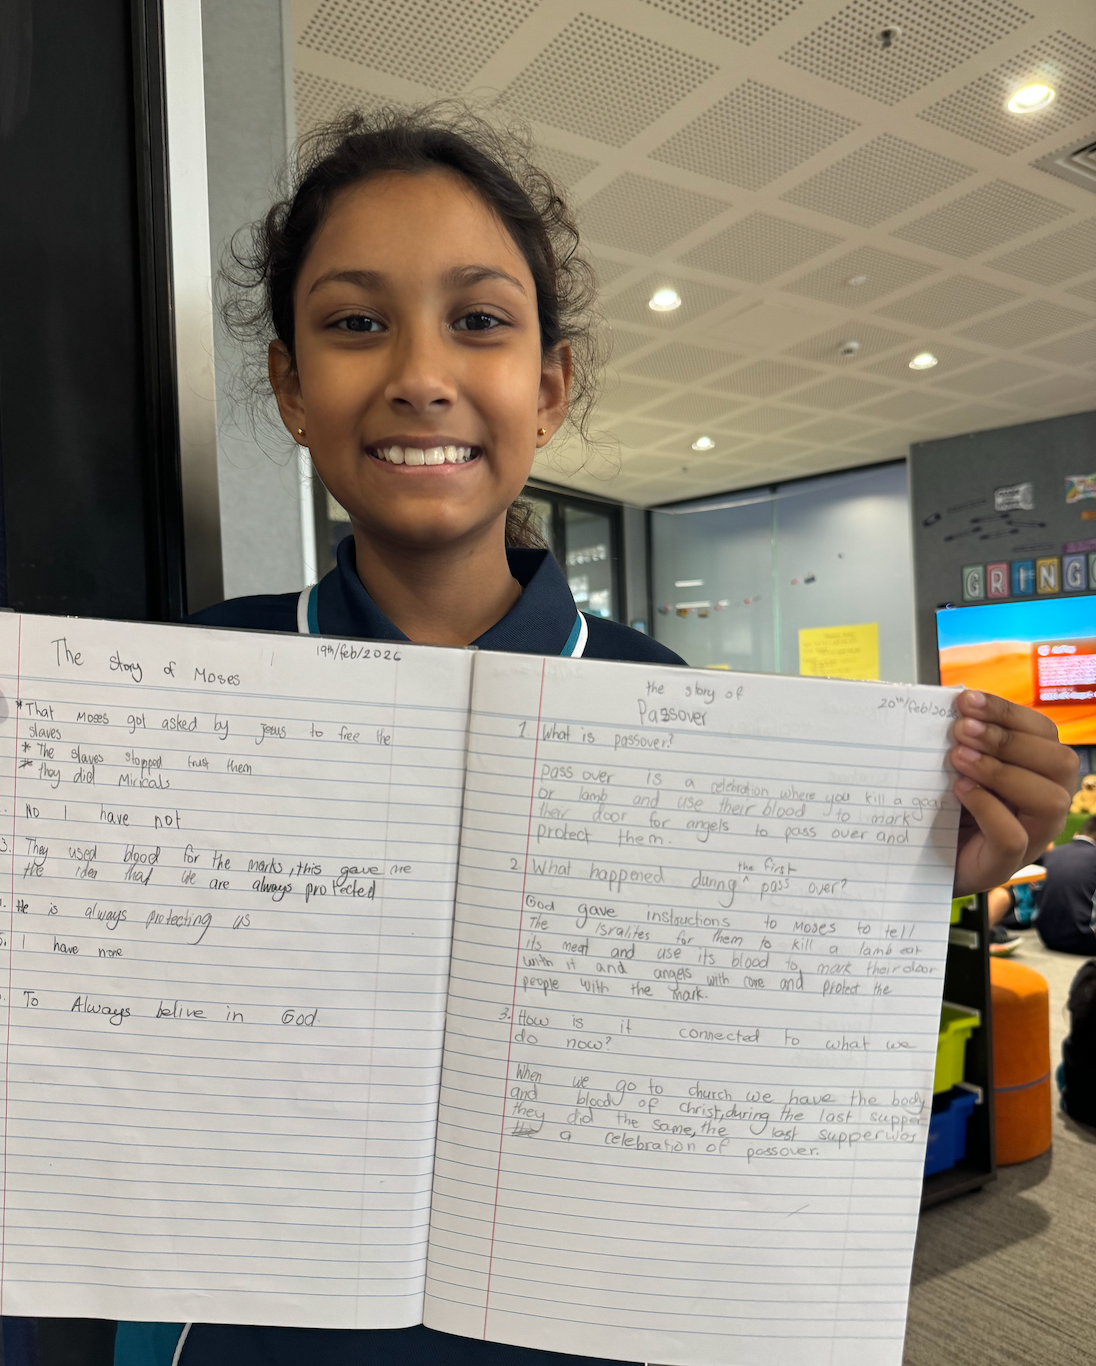 The story of Moses
19th/feb/2026
* That Moses got asked by Jesus to free the
slaves
* The slaves stopped trust them
* they did Miricals
No I have not
3. They used blood for the marks, this gave me
the idea that we are always protected
. He is always protecting us
5. I have none
. To Always belive in God.
the story of
Passover
20th/feb/202
1. What is passover?
pass over is a celebration where you kill a goat
or lamb and use their blood to mark
their door for angels to pass over and
protect them.
the first
2. What happened during ^ pass over?
God gave instructions to Moses to tell
The Isralites for them to kill a lamb eat
its meat and use its blood to mark their door
with it and angels with come and protect the
people with the mark.
3. How is it connected to what we
do now?
When we go to church we have the body
and blood of christ, during the last supper
they did the same, the last supper was
a celebration of passover.
GRINGO